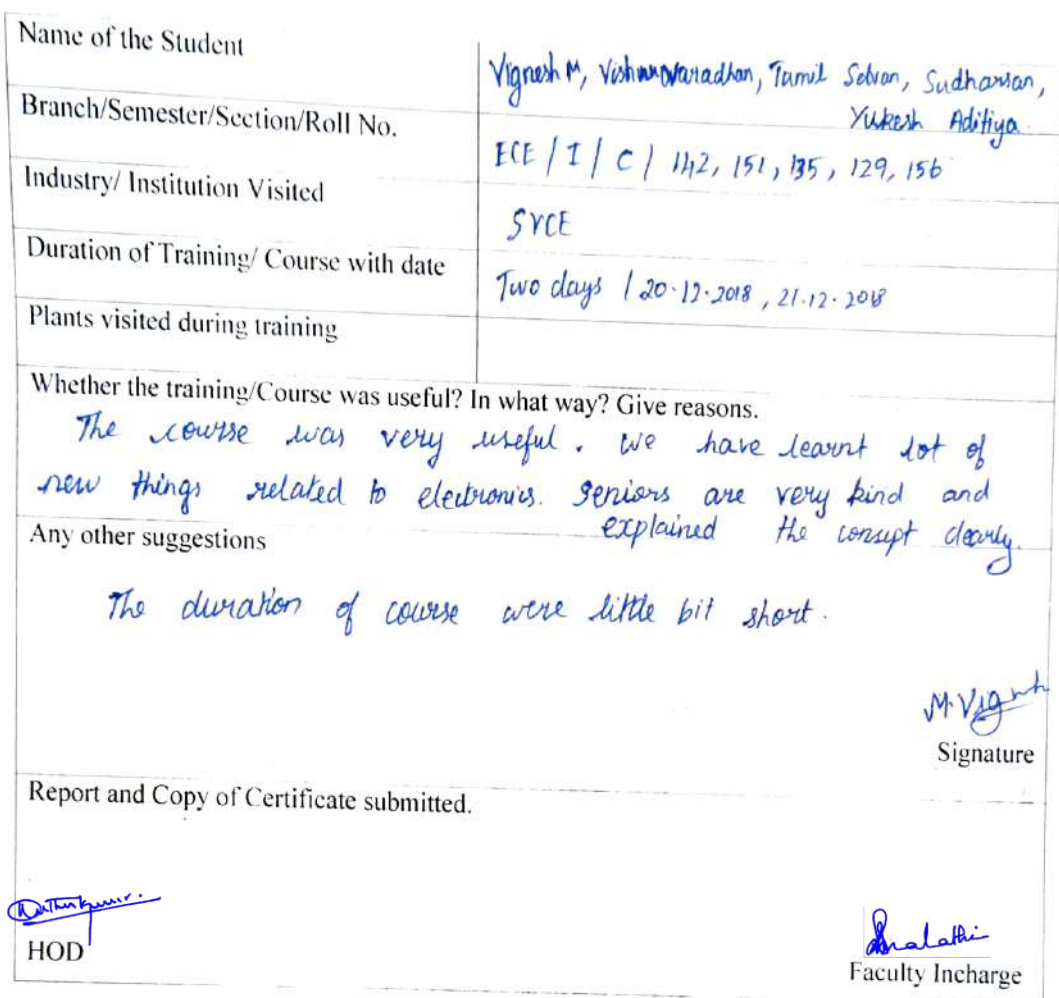 Name of the Student
Vignesh M, Vishnuvaradhan, Tamil Selvan, Sudharsan,
Yukesh Aditiya
Branch/Semester/Section/Roll No.
ECE / I / C / 142, 151, 135, 129, 156
Industry/ Institution Visited
SVCE
Duration of Training/ Course with date
Two days / 20.12.2018, 21.12.2018
Plants visited during training
Whether the training/Course was useful? In what way? Give reasons.
The course was very useful. we have learnt lot of
new things related to electronics. seniors are very kind and
explained the consept clearly.
Any other suggestions
The duration of course were little bit short.
M.Vignesh
Signature
Report and Copy of Certificate submitted.
HOD
Malathi
Faculty Incharge